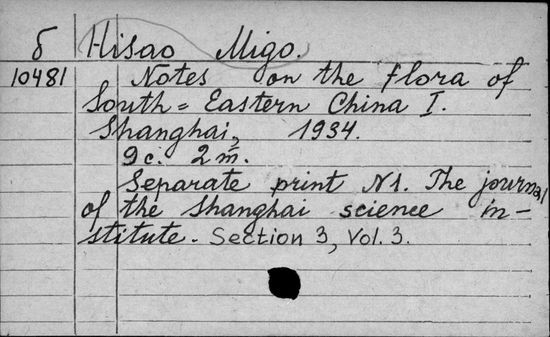 б Hisao Migo.
10481 Notes on the flora of
South=Eastern China I.
Shanghai, 1934.
9c. 2m.
Separate print N1. The journal
of the Shanghai science in-
stitute. Section 3, Vol. 3.